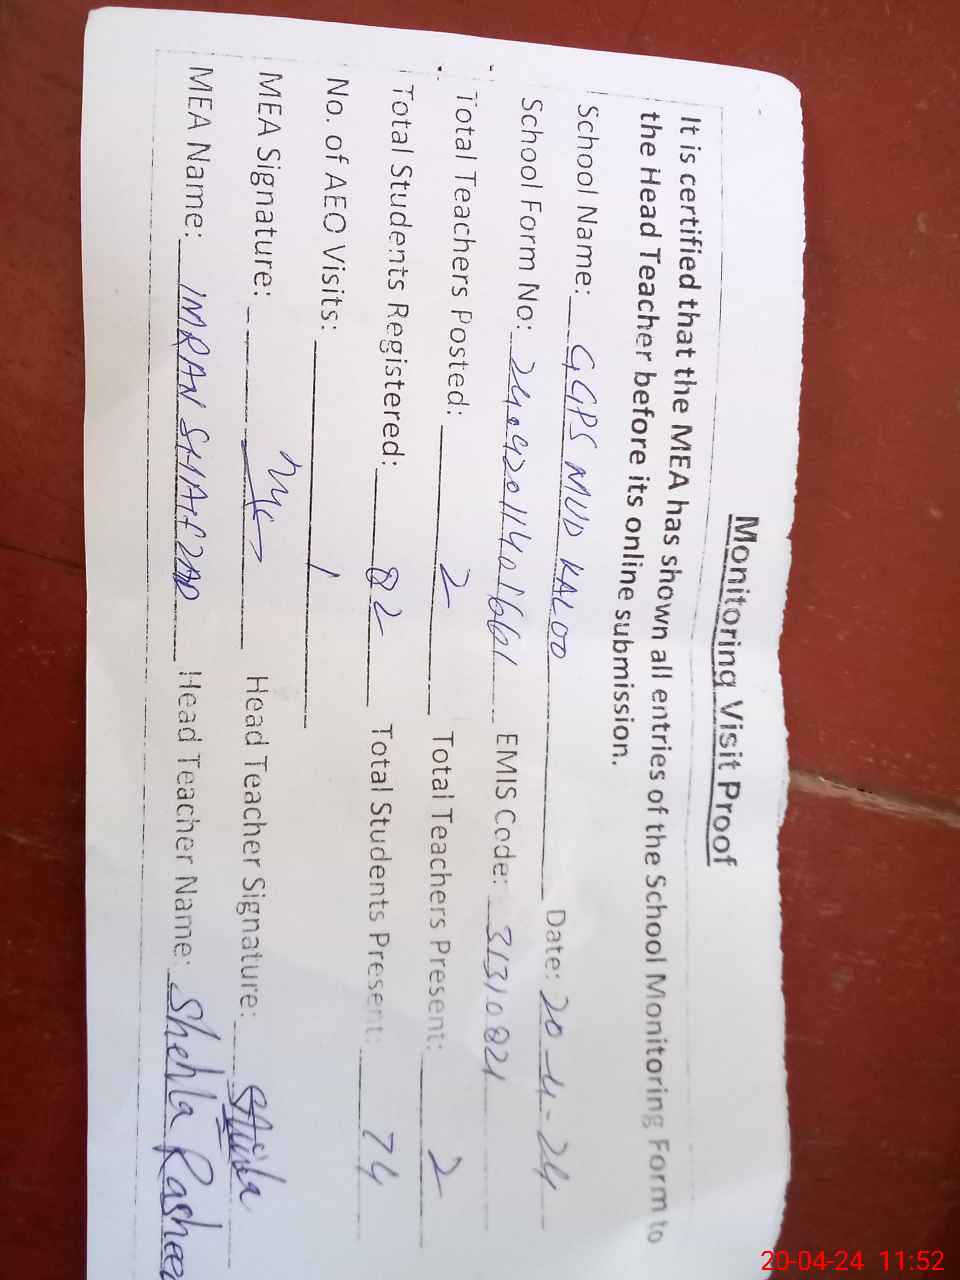 Monitoring Visit Proof
It is certified that the MEA has shown all entries of the School Monitoring Form to
the Head Teacher before its online submission.
School Name: GGPS MUD KALOO Date: 20-4-24
School Form No: EMIS Code: 31310821
Total Teachers Posted: 2 Total Teachers Present: 2
Total Students Registered: 82 Total Students Present: 74
No. of AEO Visits: 1
MEA Signature: Head Teacher Signature:
MEA Name: IMRAN SHAHZAD Head Teacher Name: Shehla Rasheed
20-04-24 11:52